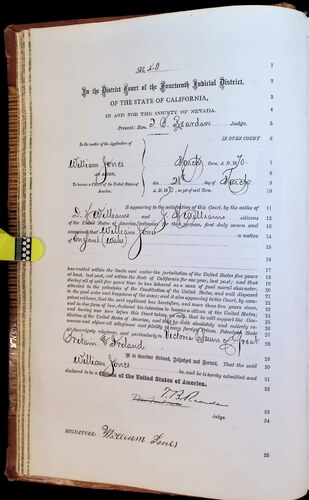 No.
In the District Court of the Fourteenth Judicial District,
OF THE STATE OF CALIFORNIA,
IN AND FOR THE COUNTY OF NEVADA.
Present: Hon. T. B. Reardan Judge.
IN OPEN COURT
In the matter of the Application of
William Jones
March Term, A. D. 1870.
an alien,
To become a Citizen of the United States of America.
this 28th day of March
A. D. 1870, as yet of said Term.
It appearing to the satisfaction of this Court, by the oaths of
D. Williams and Williams citizens
of the United States of America,
examined, that William Jones is a native
of England (Wales)
has resided within the limits and under the jurisdiction of the United States five years
at least, last past, and within the State of California for one year, last past; and that
during all of said five years' time he has behaved as a man of good moral character,
attached to the principles of the Constitution of the United States, and well disposed
to the good order and happiness of the same; and it also appearing to the Court, by competent
evidence, that the said applicant has heretofore, and more than two years since,
and in due form of law, declared his intention to become a citizen of the United States,
and having now here before this Court taken an oath, that he will support the Constitution
of the United States of America, and that he doth absolutely and entirely renounce
and abjure all allegiance and fidelity to every foreign
whatever, and particularly to Victoria Queen of Great
Britain & Ireland
It is therefore Ordered, Adjudged and Decreed, That the said
William Jones be, and he is hereby admitted and
declared to be a Citizen of the United States of America.
T. B. Reardan
Judge.
SIGNATURE: William Jones
1
2
3
4
5
6
7
8
9
10
11
12
13
14
15
16
17
18
19
20
21
22
23
24
25
26
27
28
29
30
31
32
33
34
35